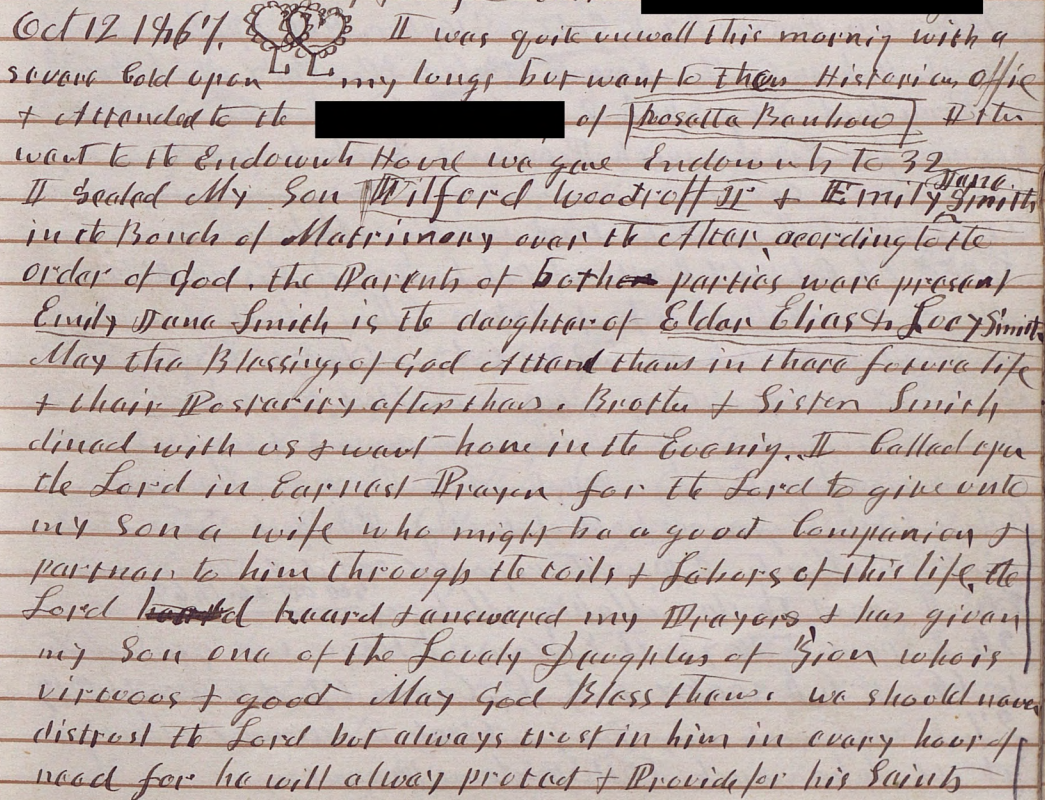 Oct 12 1867. I was quite unwell this mornig with a
severe Cold upon my lungs but went to the Historian Offic
& Attended to the of Rosetta Benbow I then
went to the Endowmt House we gave Endowmts to 32
I Sealed My Son Wilford Woodruff Jr & Emily Jane Smith
in the Bonds of Matrimony over the Altar acording to the
order of God. the Parents of both parties were present
Emily Jane Smith is the daughter of Elder Elias & Lucy Smith
May the Blessings of God Attend them in there future life
& their Posterity after them. Brother & Sister Smith
dined with us & went home in the Evenig. I Called upon
the Lord in Earnest Prayer for the Lord to give unto
my Son a wife who might be a good Companion &
partner to him through the toils & Labors of this life, the
Lord heard & answered my Prayers, & has given
my Son one of the Lovely Daughters of Zion who is
virtuous & good May God Bless them. we should never
distrust the Lord but always trust in him in every hour of
need for he will alway protect & Provide for his Saints